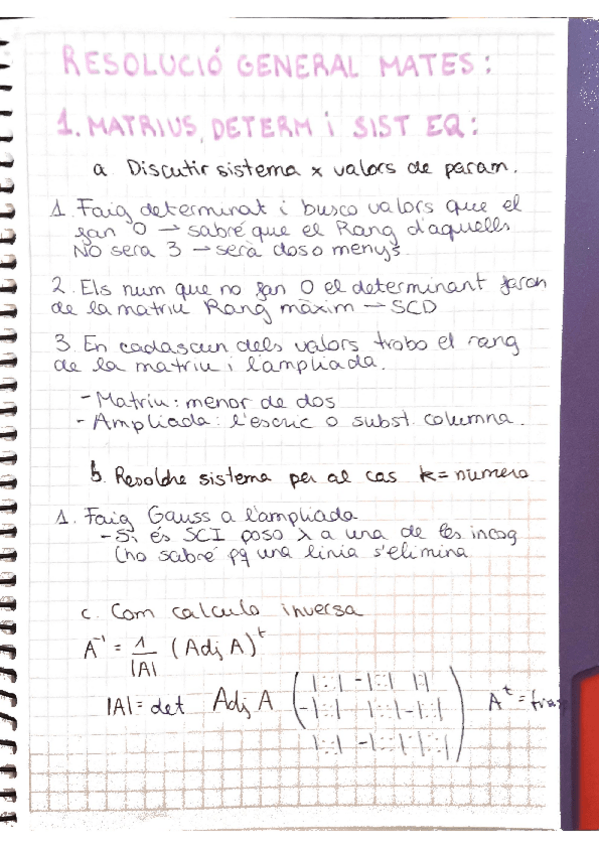 RESOLUCIÓ GENERAL MATES:
1. MATRIUS, DETERM i SIST EQ:
a. Discutir sistema x valors de param.
1. Faig determinat i busco valors que el
fan 0 → sabré que el Rang d'aquells
NO sera 3 → serà dos o menys
2. Els num que no fan 0 el determinant faran
de la matriu Rang màxim → SCD
3. En cadascun dels valors trobo el rang
de la matriu i l'ampliada.
- Matriu: menor de dos
- Ampliada: l'escric o subst. columna.
b. Resoldre sistema per al cas k = numero
1. Faig Gauss a l'ampliada
- Si és SCI poso λ a una de les incog
(ho sabré pq una linia s'elimina
c. Com calculo inversa
A⁻¹ = 1/|A| (Adj A)ᵗ
|A| = det Adj A ( |::| -|::| |:| Aᵗ = tras
-|::| |::| -|::|
|::| -|::| |::| )